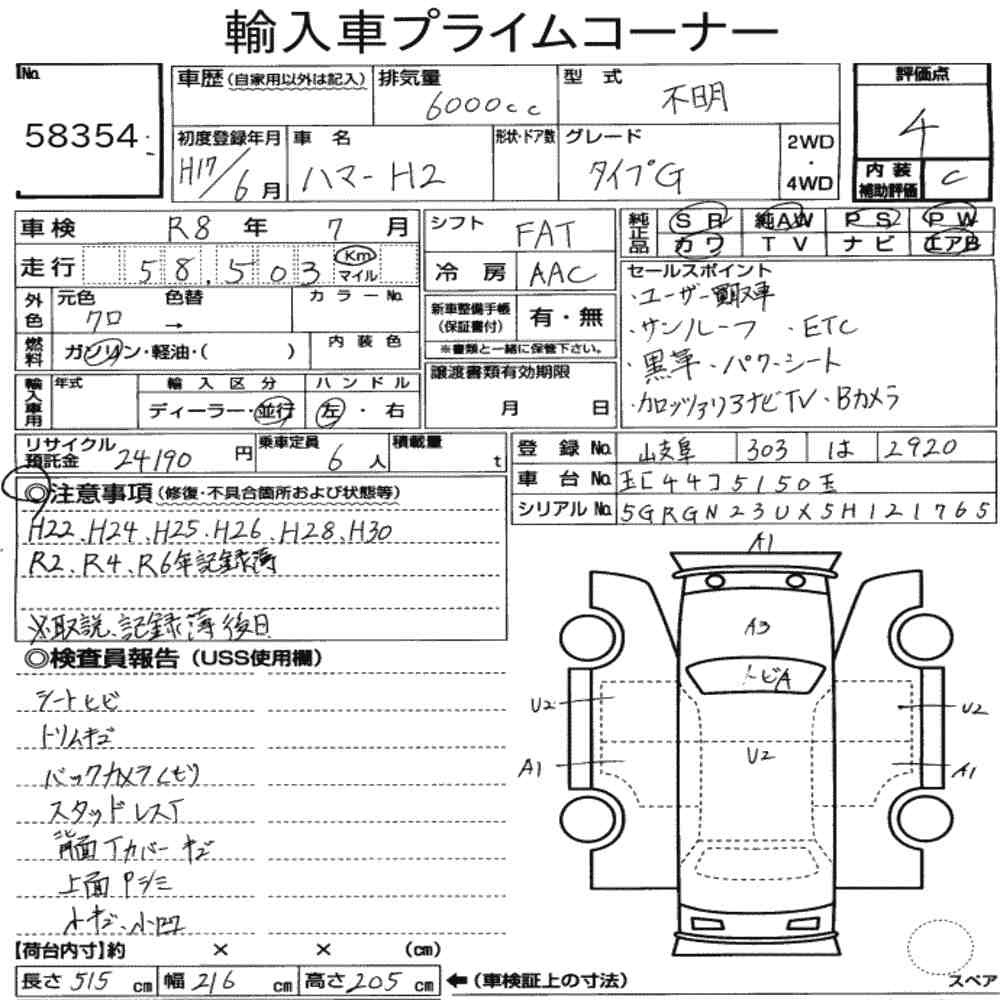 輸入車プライムコーナー
No. 58354
車歴 (自家用以外は記入) 排気量 6000cc 型式 不明
評価点 4
初度登録年月 H17/6月 車名 ハマーH2 形状・ドア数 グレード タイプG 2WD・4WD
内装補助評価 C
車検 R8年 7月 シフト FAT 純正品 SR 純AW PS PW
走行 58,503 Km マイル 冷房 AAC カワ TV ナビ エアB
外色 元色 クロ 色替 → カラーNo.
新車整備手帳(保証書付) 有・無
※書類と一緒に保管下さい。
燃料 ガソリン・軽油・( ) 内装色
輸入車用 年式 輸入区分 ディーラー・並行 ハンドル 左・右
譲渡書類有効期限 月 日
セールスポイント
・ユーザー買取車
・サンルーフ ・ETC
・黒革・パワーシート
・カロッツェリアナビTV・Bカメラ
リサイクル預託金 24190円 乗車定員 6人 積載量 t
登録No. 303 は 2920
車台No. 44 5150
シリアルNo. 5GRGN23UX5H121765
◎注意事項 (修復・不具合箇所および状態等)
H22、H24、H25、H26、H28、H30
R2、R4、R6年記録簿
※取説、記録簿後日
◎検査員報告 (USS使用欄)
シートヒビ
トリムキズ
バックカメラくもり
スタッドレスT
背面Tカバーキズ
上面Pシミ
小キズ、小凹
A1
A3
トビA
U2 U2
U2
A1 A1
【荷台内寸】約 × × (cm)
長さ 515 cm 幅 216 cm 高さ 205 cm ←(車検証上の寸法)
スペア